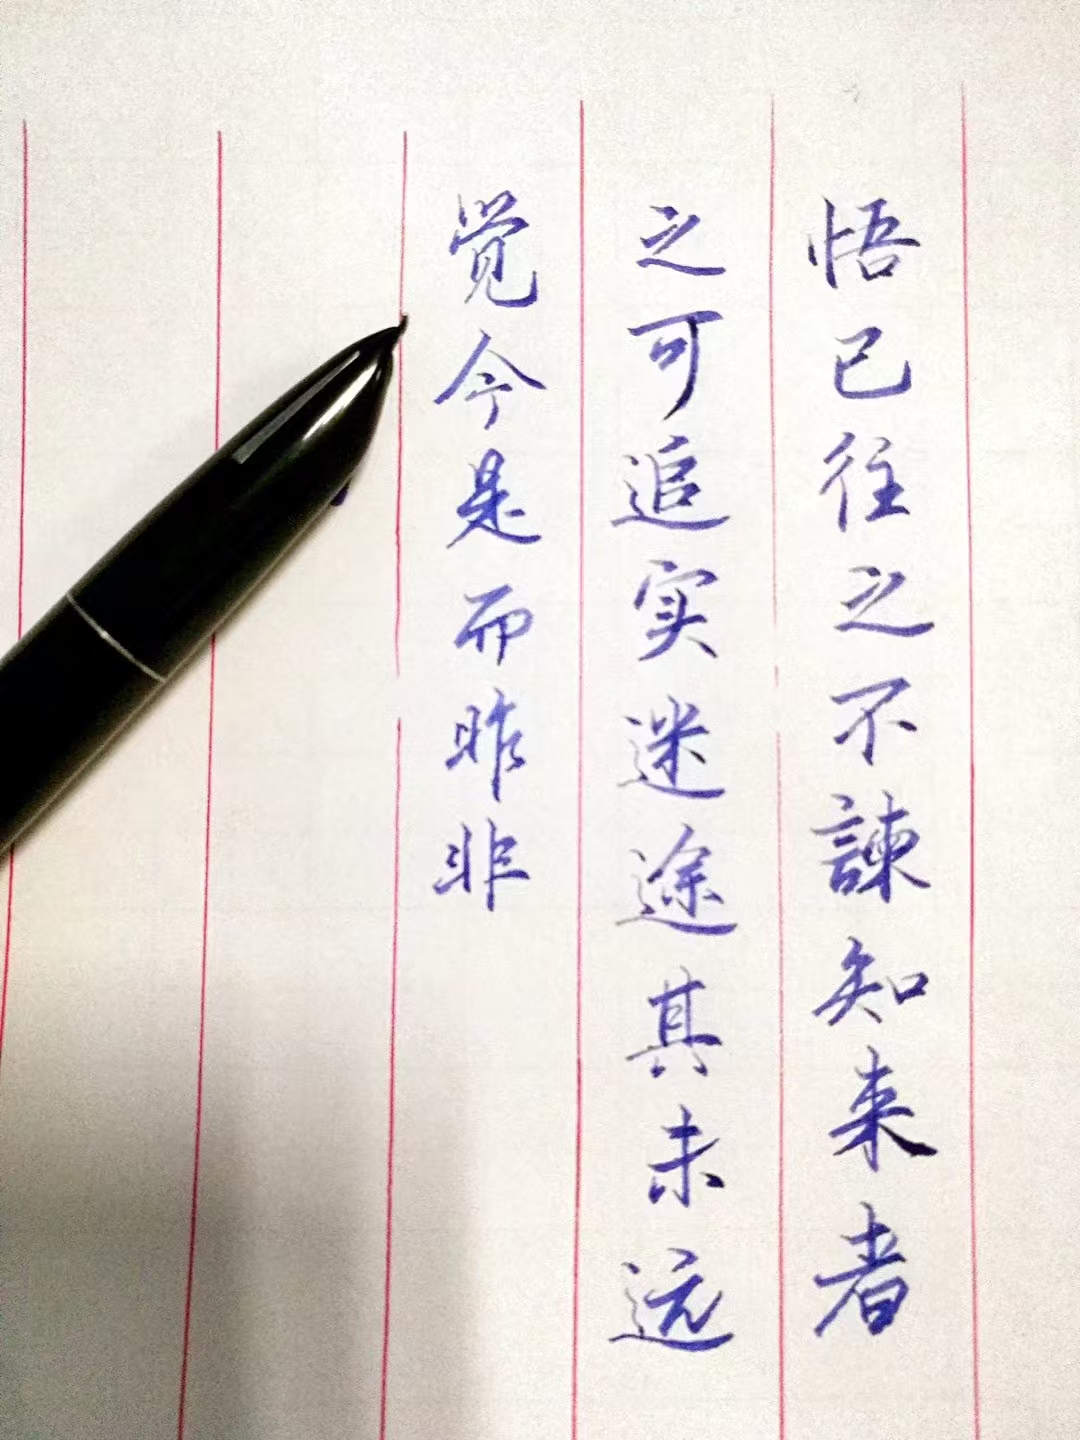 悟已往之不諫知来者
之可追实迷途其未远
觉今是而昨非